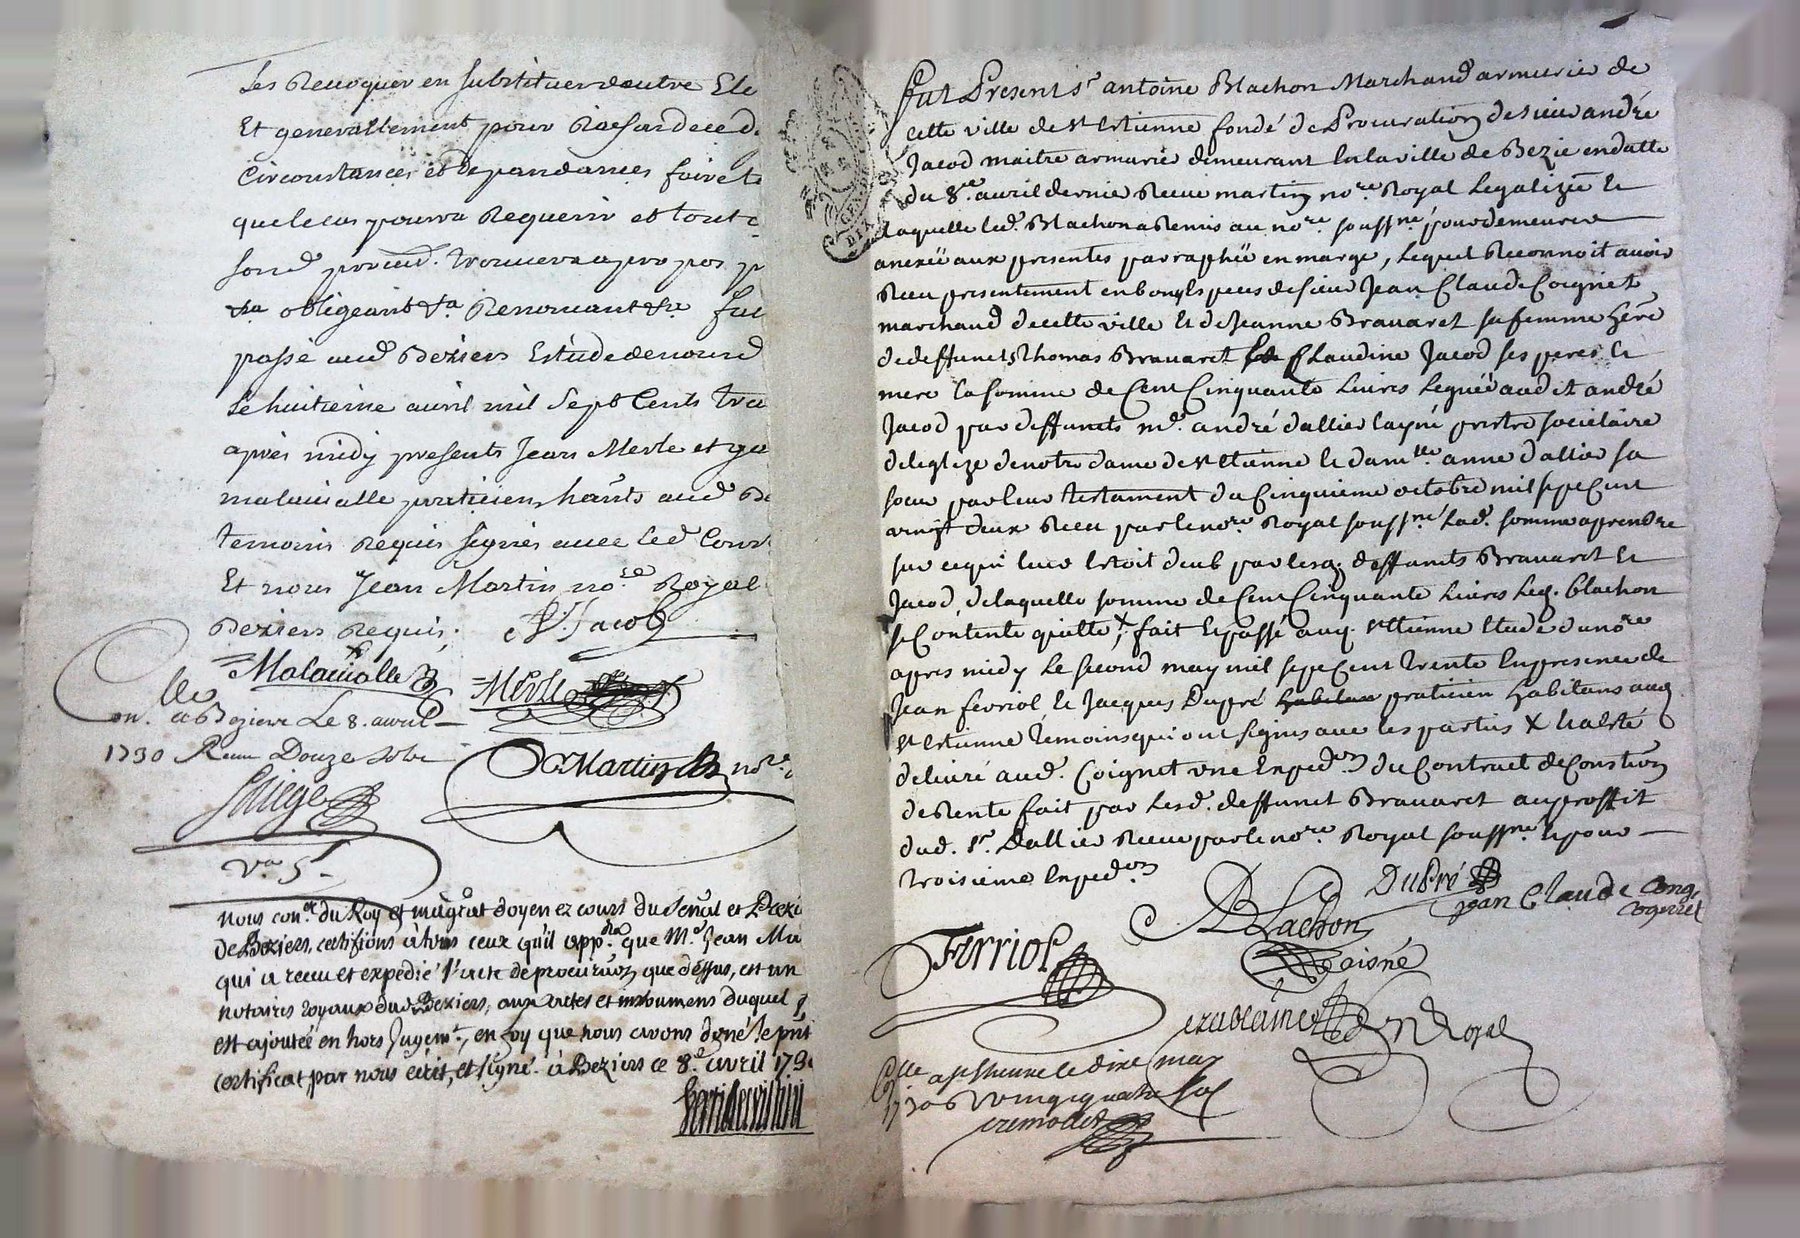 les Revoquer en substituer dautre Ele
Et generallement pour Raison de ce d
Circonstances et dependances faire to
que le cas pourra Requerir et tout c
sond. procud. trouvera a propos p
&a obligeant &a Renonceant &a fai
passé aud Beziers Estude de nousd
Le huitieme avril mil Sept Cents tre
après midy presents Jean Merle et
malacialle praticiens hants aud Be
temoins Requis signés avec led Const
Et nous Jean Martin nore Royal
Beziers Requis.
A. Jacod
Malacialle
Merle
Conlle. a Beziers Le 8. avril
1730 Receu Douze sols
Martin nore
Vа 5s
nous coner du Roy et magrat doyen ez cours du Senal et Prezi
de Beziers, certifions à tous ceux qu'il appra que Me Jean Ma
qui a receu et expedié l'acte de procuraon que dessus, est un
notaires royaux dud Beziers, aux actes et instrumens duquel f
est ajoutée en hors Jugemt, en foy que nous avons doné le pnt
certificat par nous ecrit, et signé. à Beziers ce 8e avril 173
fut Present sr antoine Blachon Marchand armurier de
cette ville de st Estienne fondé de Procuration de sieur andré
Jacod maitre armurié demeurant En la ville de Bezie en datte
du 8.e avril dernie Receue martin nore Royal Legalizée Et
Laquelle led. Blachon a Remis au nore soussné pour demeurer
anexée aux presentes par raphée en marge, Lequel Reconnoit avoir
Receu presentement en bonnes especes de sieur Jean Claude Coignet
marchand de cette ville Et de Jeanne Bravaret sa femme here
de deffuncts Thomas Bravaret Claudine Jacod ses peres Et
mere La somme de Cent Cinquante Livres Leguée audit andré
Jacod par deffuncts mr. andré dallier layné prestre sociétaire
de leglize de notre dame de st Etienne Et damlle anne dallier sa
soeur par leur testament du Cinquieme octobre mil sept Cent
vingt deux Receu par le nore Royal soussné Lad. somme a prendre
sur ce qui leur Estoit deub par lesq. deffunts Bravaret Et
Jacod, de laquelle somme de Cent Cinquante Livres Led. blachon
se Contente quitte, X fait Et passé aud. st Etienne Etude du nore
apres midy Le second may mil sept Cent trente En presence de
Jean ferriol Et Jacques Dupré praticien Habitans aud
st Estienne temoins qui ont signés avec les parties X ha Esté
delivré aud. Coignet une Expedon du Contract de Constion
de Rente fait par Lesd. deffunct Bravaret au proffit
dud. sr. Dallier Receu par le nore Royal soussné Et pour
troisieme Expedon
DuPré
Jean Claude
Cogniet
Blachon
Ferriol
laisné
N Royal
Conlle a St Etienne le dixe may
1730 R vingt quatre sols